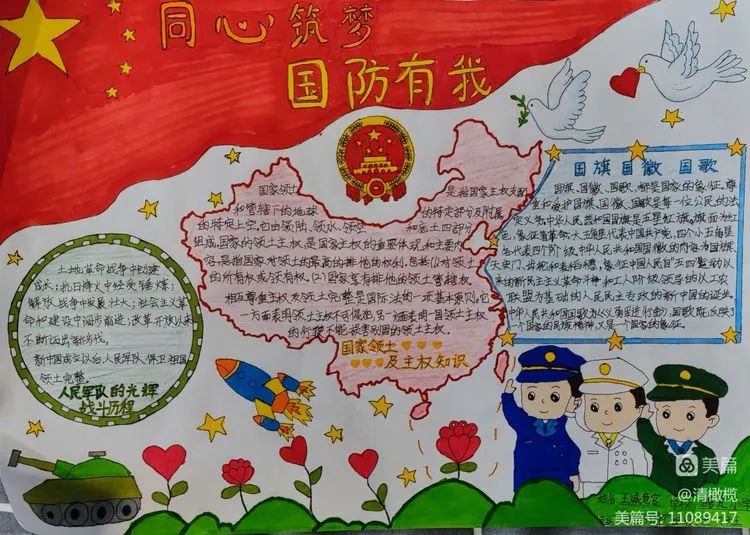 同心筑梦
国防有我
国旗国徽 国歌
国旗、国徽、国歌、都是国家的象征,尊
重和爱护国旗、国徽、国歌是每一位公民的法
定义务,中华人民共和国国旗是五星红旗,旗面为红
色,象征着革命,大五角星代表中国共产党,四个小五角星
代表四个阶级,中华人民共和国国徽的内容为国旗、
天安门、齿轮和麦稻穗,象征中国人民自"五四"运动以
来的新民主主义革命斗争和工人阶级领导的以工农
联盟为基础的人民民主专政的新中国的诞生。
中华人民共和国国歌为《义勇军进行曲》,国歌既反映了
一个国家的民族精神,又是一个国家的象征。
国家领土 是指国家主权支配
和管辖下的地球 的特定部分及附属
的特定上空,它由领陆、领水、领空 和底土四部分
组成,国家的领土主权,是国家主权的重要体现和主要内
容,是指国家对领土的最高的排他的权利,包括(1)对领土
的所有权或领有权、(2)国家享有排他的领土管辖权。
相互尊重主权及领土完整是国际法的一项基本原则,它
一方面表明领土主权不可侵犯,另一方面表明一国领土主权
的行使不能损害别国的领土主权。
国家领土
及主权知识
土地革命战争中创建
成长;抗日烽火中经受锤炼;
解放战争中发展壮大;社会主义革
命和建设中阔步前进;改革开放以来
不断迈出新步伐。
新中国成立以后,人民军队,保卫祖国
领土完整。
人民军队的光辉
战斗历程
美篇
@清橄榄
美篇号: 11089417
姓名